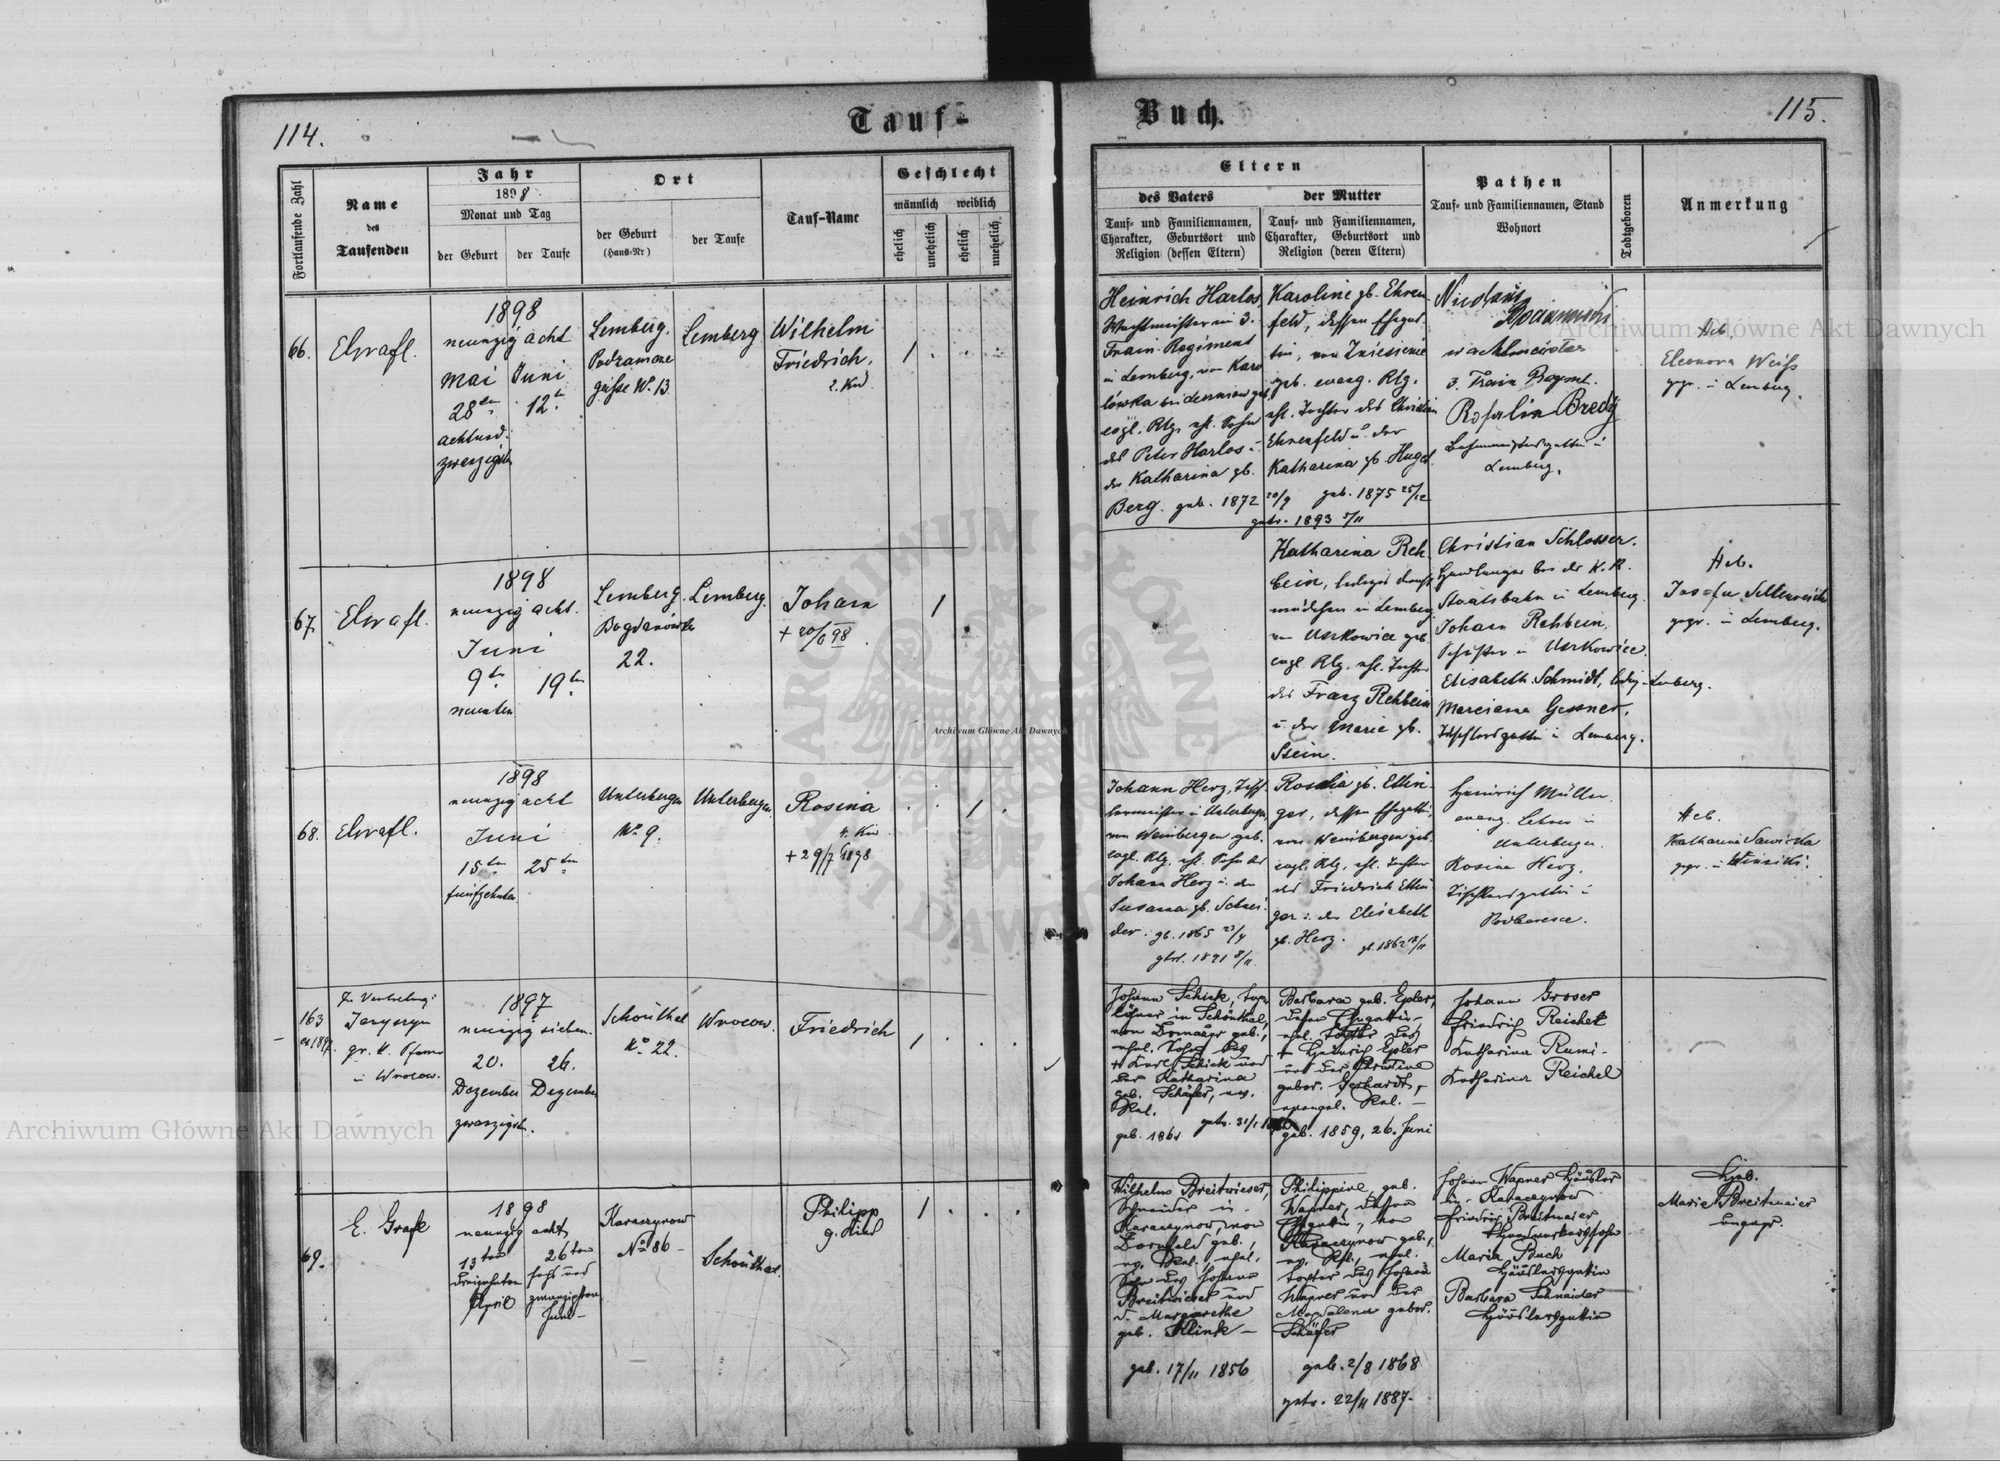 114.
Tauf-
Buch.
115.
Fortlaufende Zahl
Name
des
Taufenden
Jahr
1898
Monat und Tag
der Geburt
der Taufe
Ort
der Geburt
(Haus-Nr)
der Taufe
Tauf-Name
Geschlecht
männlich weiblich
ehelich
unehelich
ehelich
unehelich
Eltern
des Vaters
Tauf- und Familiennamen,
Charakter, Geburtsort und
Religion (dessen Eltern)
der Mutter
Tauf- und Familiennamen,
Charakter, Geburtsort und
Religion (deren Eltern)
Pathen
Tauf- und Familiennamen, Stand
Wohnort
Todtgeboren
Anmerkung
66.
1898
neunzig acht
Mai Juni
28ten 12t
achtund-
zwanzigsten
Lemberg.
gasse No. 13
Lemberg
Wilhelm
Friedrich.
2. Kind
1
Heinrich Harlos
Wachtmeister im 3.
Train-Regiment
in Lemberg, von Karo
lówka
des Peter Harlos u.
der Katharina gb.
Berg. geb. 1872 20/9
Karoline gb. Ehren
feld, dessen Ehegat-
tin, von
geb. evang. Rlg.
ehl. Tochter des Christian
Ehrenfeld u. der
Katharina gb. Hugel.
geb. 1875 25/12
getr. 1893 5/11
Wachtmeister
3. Train Regmt.
Rosalia Bredy
Lemberg.
Heb.
Eleonora Weiss
gepr. in Lemberg.
67.
1898
neunzig acht.
Juni
9ten 19ten
neunten
Lemberg.
Bogdanówka
22.
Lemberg.
Johann
+ 20/6 98
1
Katharina Reh-
bein, lediges Dienst
mädchen in Lemberg
von Unikowice geb.
evgl. Rlg. ehl. Tochter
des Franz Rehbein
u. der Marie gb.
Stein.
Christian Schlosser.
Staatsbahn in Lemberg.
Johann Rehbein,
Elisabeth Schmidt, ledig Lemberg.
Marciana Gessner,
Tischlersgattin in Lemberg.
Heb.
gepr. in Lemberg.
68.
1898
neunzig acht
Juni
15ten 25ten
fünfzehnten
Unterbergen
No. 9.
Unterbergen
Rosina
4. Kind
+ 29/7 1898
1
Johann Herz, Tisch-
lermeister in Unterbergen,
von Weinbergen geb.
evgl. Rlg. ehl. Sohn des
Johann Herz u. der
Susanna gb. Schnei-
der. gb. 1865 23/4
getr. 1891 8/11
Rosalia gb. Ettin-
ger, dessen Ehegattin,
von Weinbergen geb.
evgl. Rlg. ehl. Tochter
des Friedrich Ettin-
ger u. der Elisabeth
gb. Herz. gb. 1862 18/11
Heinrich Müller
evang. Lehrer in
Unterbergen.
Rosina Herz,
Tischlersgattin in
Podberesce.
Heb.
Katharina Sawicka
gepr. in Winniki.
163
ex 1897.
In Vertretung:
gr. k. Pfarrer
in Wrocow.
1897
neunzig sieben.
20. 26.
Dezember Dezember
zwanzigsten.
Schönthal
No. 22.
Wrocow.
Friedrich
1
Johann Schick, Tag-
löhner in Schönthal,
von Dornfeld geb.,
ehel. Sohn des
+ Karl Schick und
der Katharina
geb. Schäfer, ev.
Rel.
geb. 1861 getr. 31/1
Barbara geb. Epler,
dessen Ehegattin –
ehel. Tochter des
+ Heinrich Epler
und der Christine
gebor. Gerhardt,
evangel. Rel. –
geb. 1859, 26. Juni
Johann Groser
Friedrich Reichel
Katharina Rumi-
Katharina Reichel
69.
E. Grafe
1898
neunzig acht
13ten 26ten
dreizehnten sechs und
April zwanzigsten
Juni –
Karaczynow
No 86 –
Schönthal.
Philipp
9. Kind
1
Wilhelm Breitwieser,
Schneider in
Karaczynow, von
Dornfeld geb.,
ev. Rel. ehel.
Sohn des Johann
Breitwieser und
d. Margarethe
geb. Klink –
geb. 17/11 1856
Philippine, geb.
Wagner, dessen
Ehegattin, von
Karaczynow geb.,
ev. Rel., ehel.
Tochter des Johann
Wagner und der
Magdalena gebor.
Schäfer
geb. 2/8 1868
getr. 22/11 1887.
Johann Wagner Häusler
in Karaczynow
Friedrich Breitmaier
Maria Buch
Häuslersgattin
Barbara Schneider
Häuslersgattin
Heb.
Marie Breitmaier
ungepr.
Archiwum Główne Akt Dawnych
Archiwum Główne Akt Dawnych
Archiwum Główne Akt Dawnych
ARCHIWUM GŁÓWNE AKT DAWNYCH